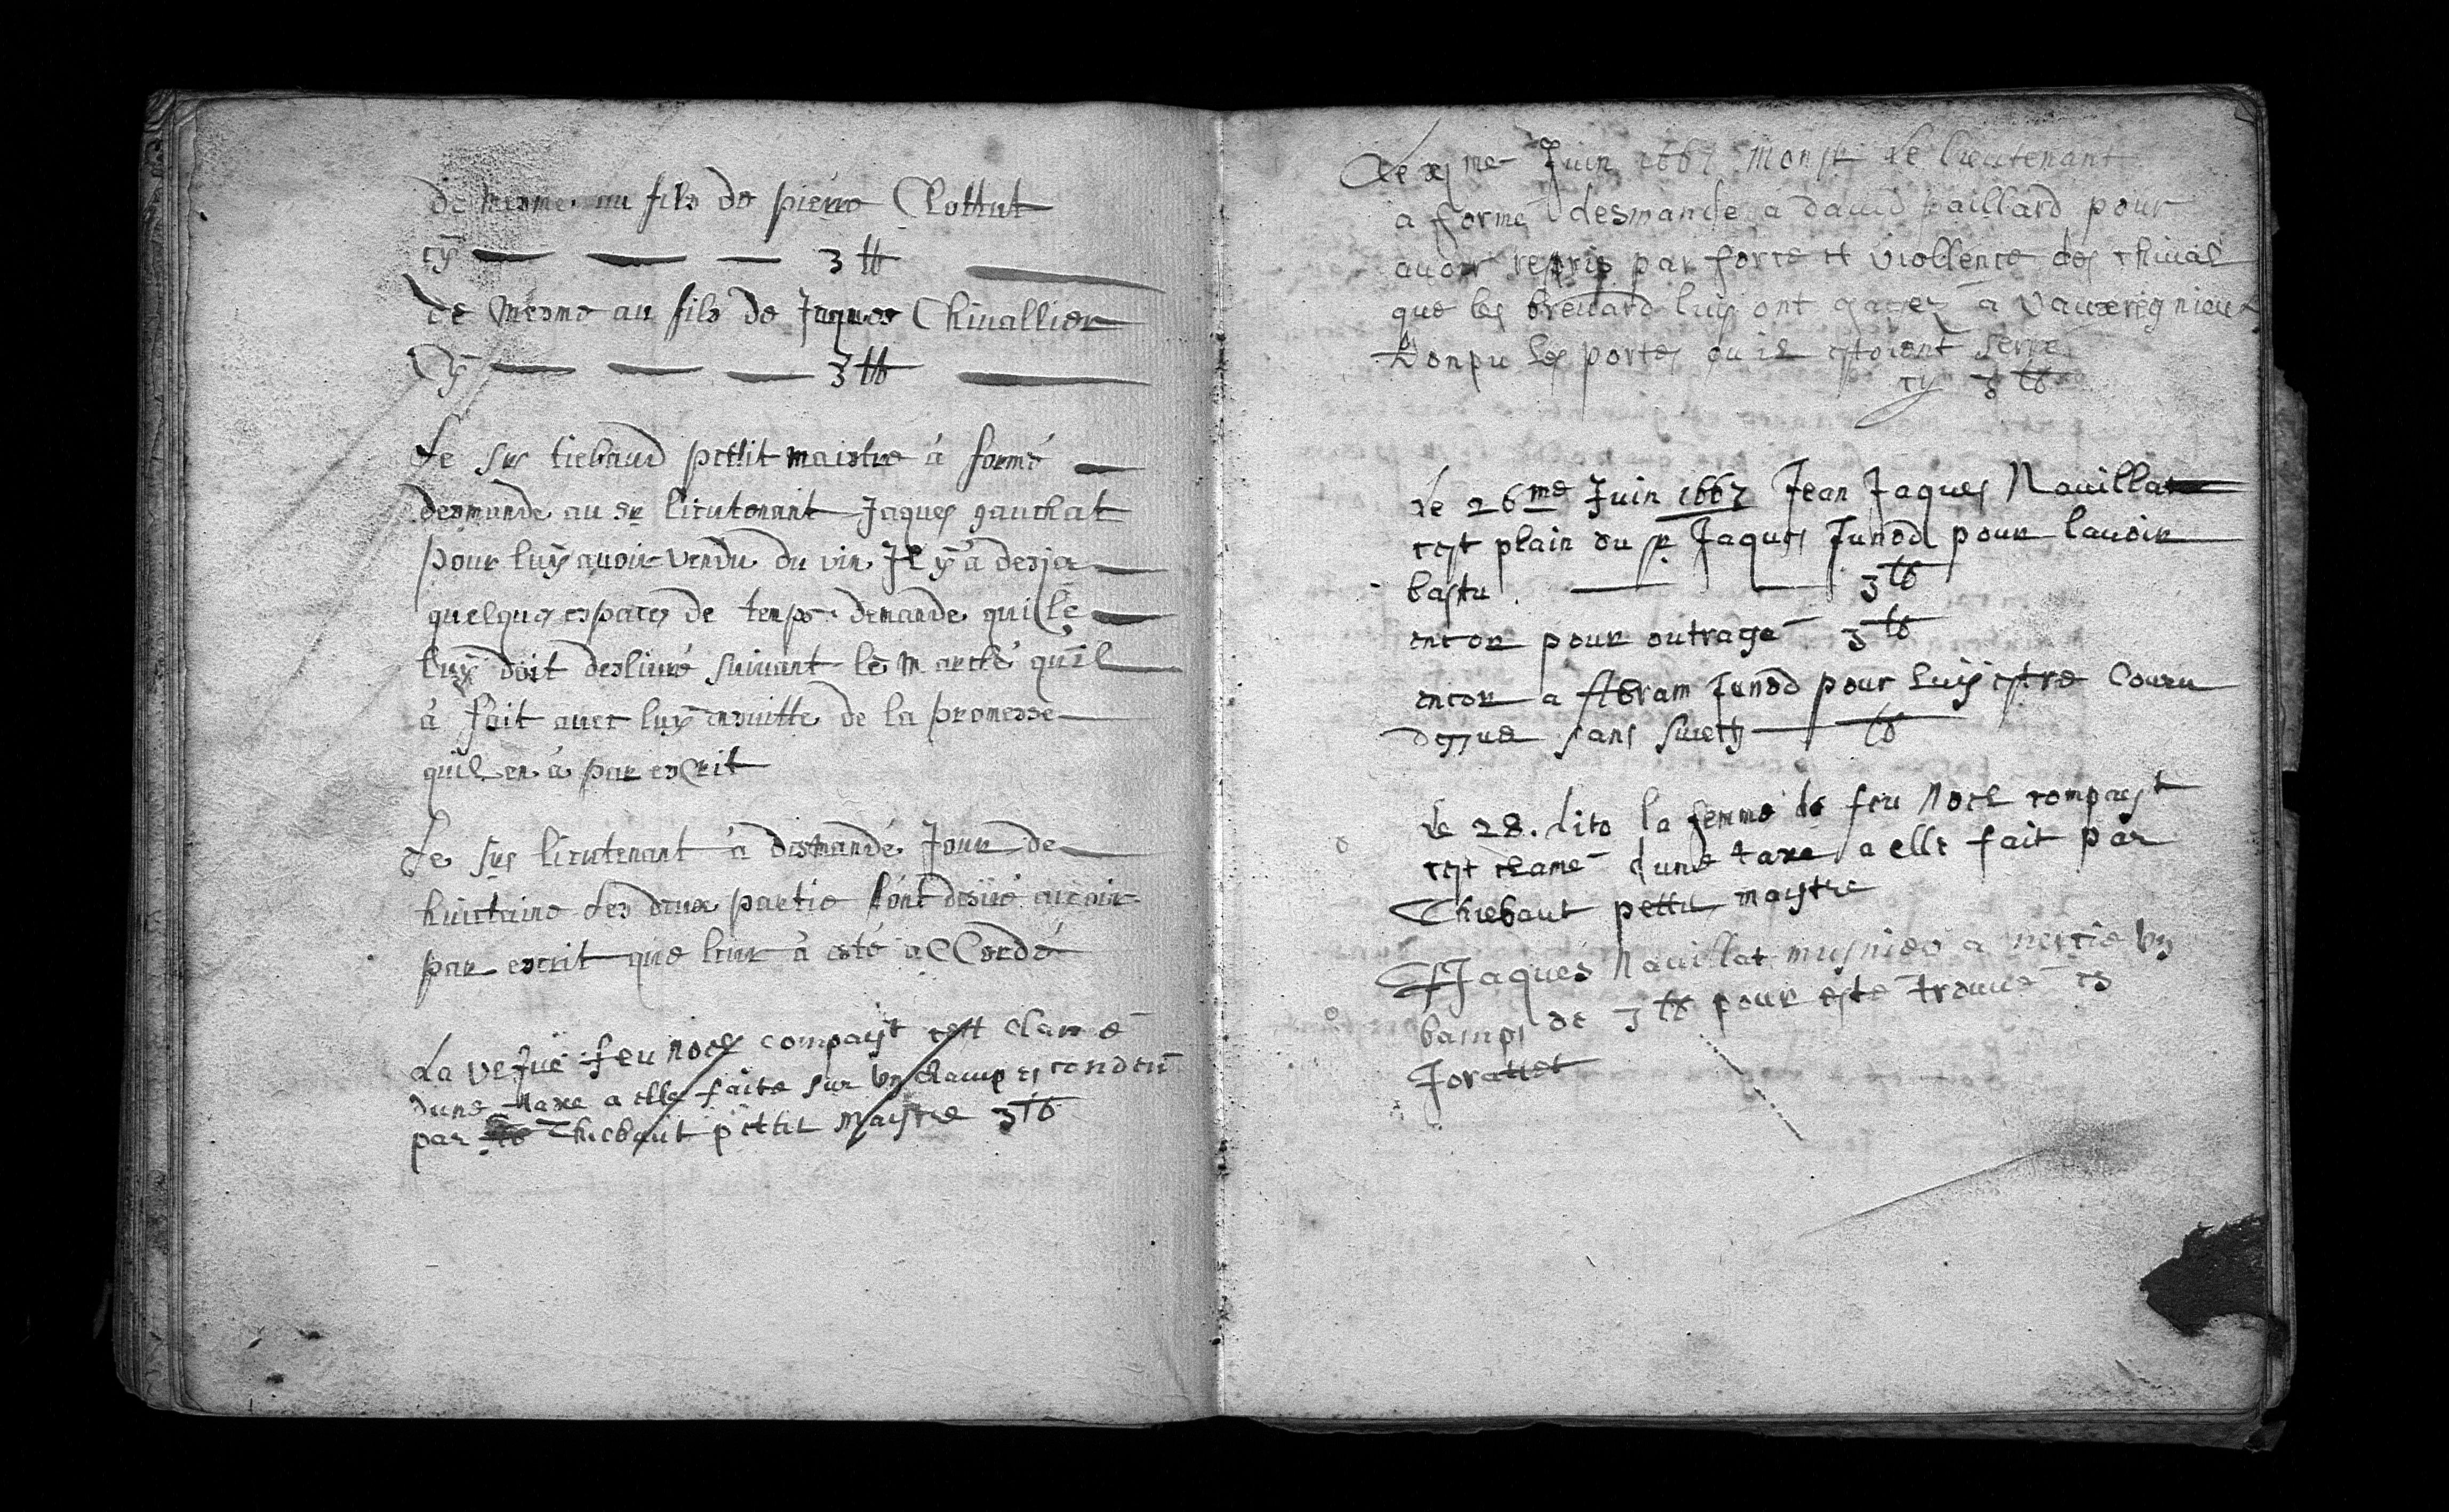 de mesme au fils de pierre Clottut
cy 3 lb
de mesme au fils de Jaques Chivallier
Cy 3 lb
Le sus tiebaud pettit maistre à formé
desmande au sr lieutenant Jaques gauchat
pour luÿ avoir vendu du vin Jl ÿ à desja
quelques espaces de temps demande qui le
luÿ doit deslivré suivant le marché qu'il
à fait avec luÿ ensuitte de la promesse
quil en à par escrit
Le sus lieutenant à desmandé Jour de
huictaine les deux partie sont desiré avoir
par escrit que leur à esté acCordé
La vefue feu noel compayt cest clamé
dune taxe a elle faite sur vn champ es
par Thiebaut pettit maystre 3 lb
Le xj me Juin 1667 Monsr le lieutenant
a formé desmande a david paillard pour
avoir repris par force et viollence des chival
que les brenard luy ont gagez a Vauxregnieux
Ronpu les portes ou il estoient serre
cy 3 lb
Le 26me Juin 1667 Jean Jaques Navillat
cest plain du sr Jaques Junod pour lavoir
bastu 3 lb
encor pour outragé 3 lb
encor a Abram Junod pour luy estre Couru
dessus sans suiett lb
Le 28. dito la femme de feu Noel compayt
cest clamé dune taxe a elle fait par
Thiebaut pettit maystre
Jaques Navillat musnier a vn
bamps de 3 lb pour esté trouvé es
Jorattet